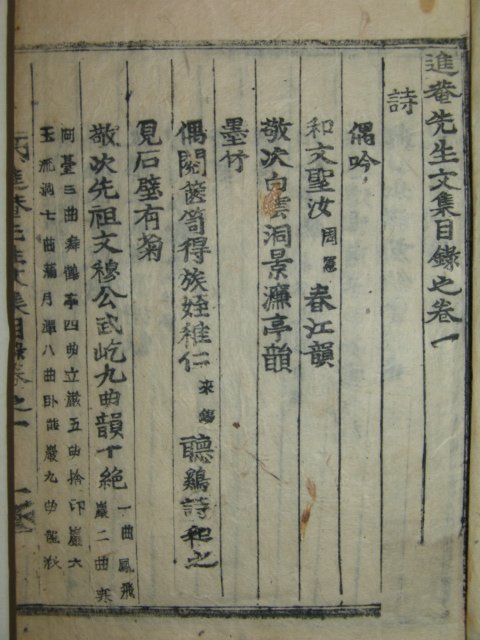 進菴先生文集目錄之卷一
詩
偶吟
和文聖汝周憲春江韻
敬次白雲洞景濂亭韻
墨竹
偶閱篋笥得族姪稚仁來錫聽鷄詩和之
見石壁有菊
敬次先祖文穆公武屹九曲韻十絶一曲鳳飛巖二曲寒
岡臺三曲舞鶴亭四曲立巖五曲捨印巖六
玉流洞七曲滿月潭八曲臥龍巖九曲龍湫
進菴先生文集目錄卷之一